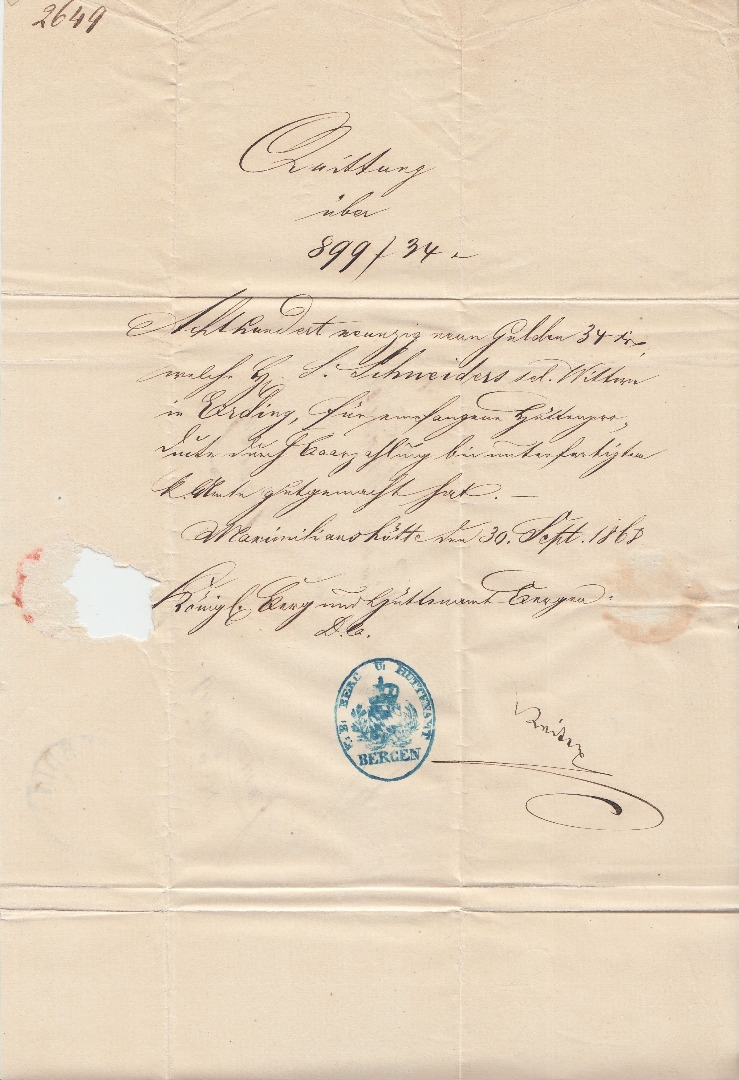 2649
Quittung
über
899 f 34 x
Achthundert neunzig neun Gulden 34 kr,
welche H. S. Schneiders sel. Wittwe
in Erding, für empfangene Hüttenpro-
ducte durch Baarzahlung bei unterfertigtem
k. Amte gutgemacht hat. —
Maximilianshütte den 30. Sept. 1868
Königl. Berg und Hüttenamt Bergen.
K. B. BERG U. HÜTTENAMT
BERGEN